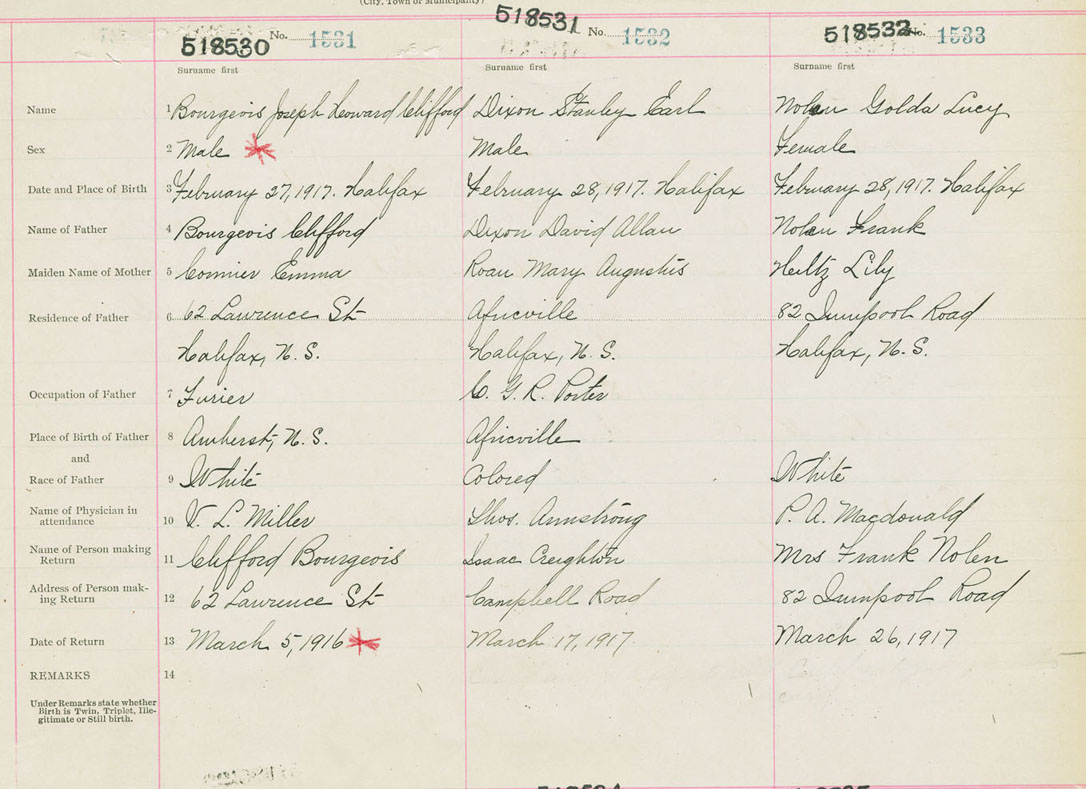 (City, Town or Municipality)
518530 No. 1531
518531 No. 1532
518532 No. 1533
Surname first Surname first Surname first
Name 1 Bourgeois Joseph Leoward Clifford Dixon Stanley Earl Nolen Golda Lucy
Sex 2 Male Male Female
Date and Place of Birth 3 February 27, 1917. Halifax February 28, 1917. Halifax February 28, 1917. Halifax
Name of Father 4 Bourgeois Clifford Dixon David Allan Nolen Frank
Maiden Name of Mother 5 Cormier Emma Roan Mary Augustus Heltz Lily
Residence of Father 6 62 Lawrence St Africville 82 Road
Halifax, N.S. Halifax, N.S. Halifax, N.S.
Occupation of Father 7 Furier C. G. R. Porter
Place of Birth of Father 8 Amherst, N.S. Africville
and
Race of Father 9 White Colored White
Name of Physician in
attendance 10 V. L. Miller Thos. Armstrong P. A. Macdonald
Name of Person making
Return 11 Clifford Bourgeois Isaac Creighton Mrs Frank Nolen
Address of Person mak-
ing Return 12 62 Lawrence St Campbell Road 82 Road
Date of Return 13 March 5, 1916 March 17, 1917. March 26, 1917
REMARKS 14
Under Remarks state whether
Birth is Twin, Triplet, Ille-
gitimate or Still birth.